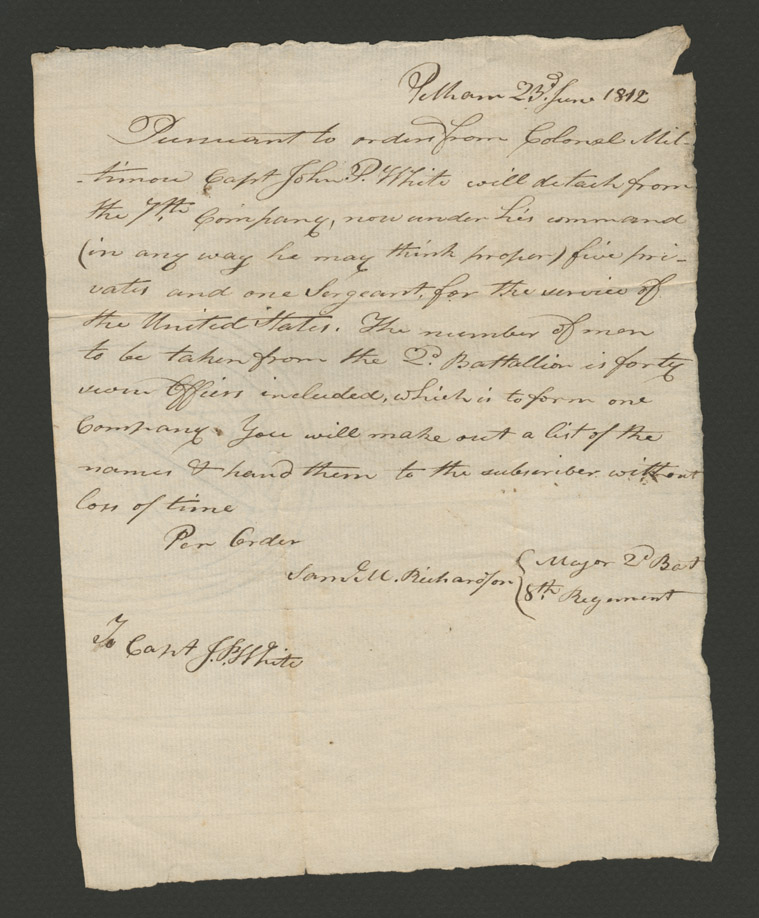 Pelham 23d June 1812
Pursuant to orders from Colonel Mil-
-timore Capt John P. White will detach from
the 7th Company, now under his command
(in any way he may think proper) five pri-
vates and one Sergeant, for the service of
the United States. The number of men
to be taken from the 2d Battallion is forty
seven Officers included, which is to form one
Company. You will make out a list of the
names & hand them to the subscriber without
loss of time
Per Order
Saml M. Richardson { Major 2d Bat
8th Regiment
To Capt J. P. White